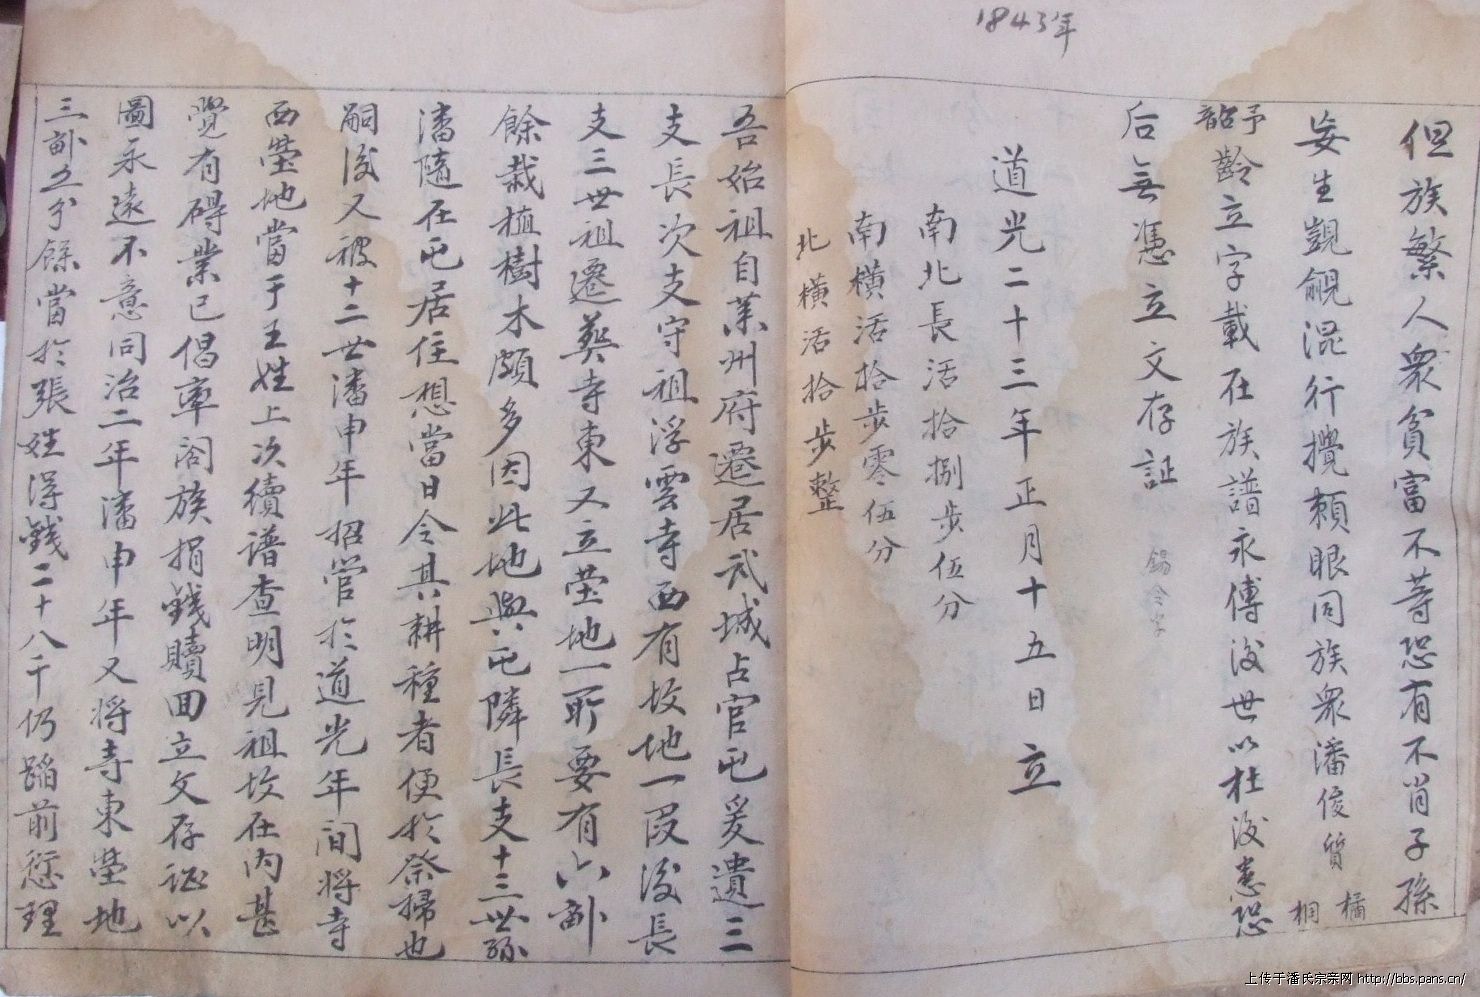 1843年
但族繁人衆貧富不等恐有不肖子孫
妄生覬覦混行攪賴眼同族衆潘俊質橘桐
予韶齡立字載在族譜永傳後世以杜後患恐
后無憑立文存証
錫令字
道光二十三年正月十五日立
南北長活拾捌步伍分
南橫活拾步零伍分
北橫活拾步整
吾始祖自萊州府遷居武城占官屯爰遺三
支長次支守祖浮雲寺西有坟地一段後長
支三世祖遷葬寺東又立塋地一所要有六畝
餘栽植樹木頗多因此地與屯隣長支十三世孫
潘隨在屯居住想當日令其耕種者便於祭掃也
嗣後又被十二世潘申年招管於道光年間將寺
西塋地當于王姓上次續谱查明見祖坟在内甚
覺有碍業已倡率閤族捐錢贖回立文存证以
圖永遠不意同治二年潘申年又将寺東塋地
三畝五分餘當於張姓得錢二十八千仍蹈前愆理
上传于潘氏宗亲网 http://bbs.pans.cn/